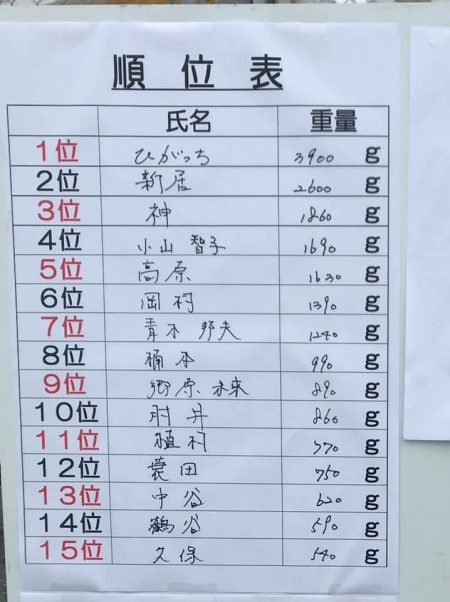 順位表
氏名 重量
1位 ひがっち 3900 g
2位 新居 2600 g
3位 神 1860 g
4位 小山 智子 1690 g
5位 高原 1630 g
6位 岡村 1390 g
7位 青木 邦夫 1240 g
8位 楠本 990 g
9位 郷原 未来 890 g
10位 肘井 860 g
11位 植村 770 g
12位 蓑田 750 g
13位 中谷 620 g
14位 鶴谷 590 g
15位 久保 540 g